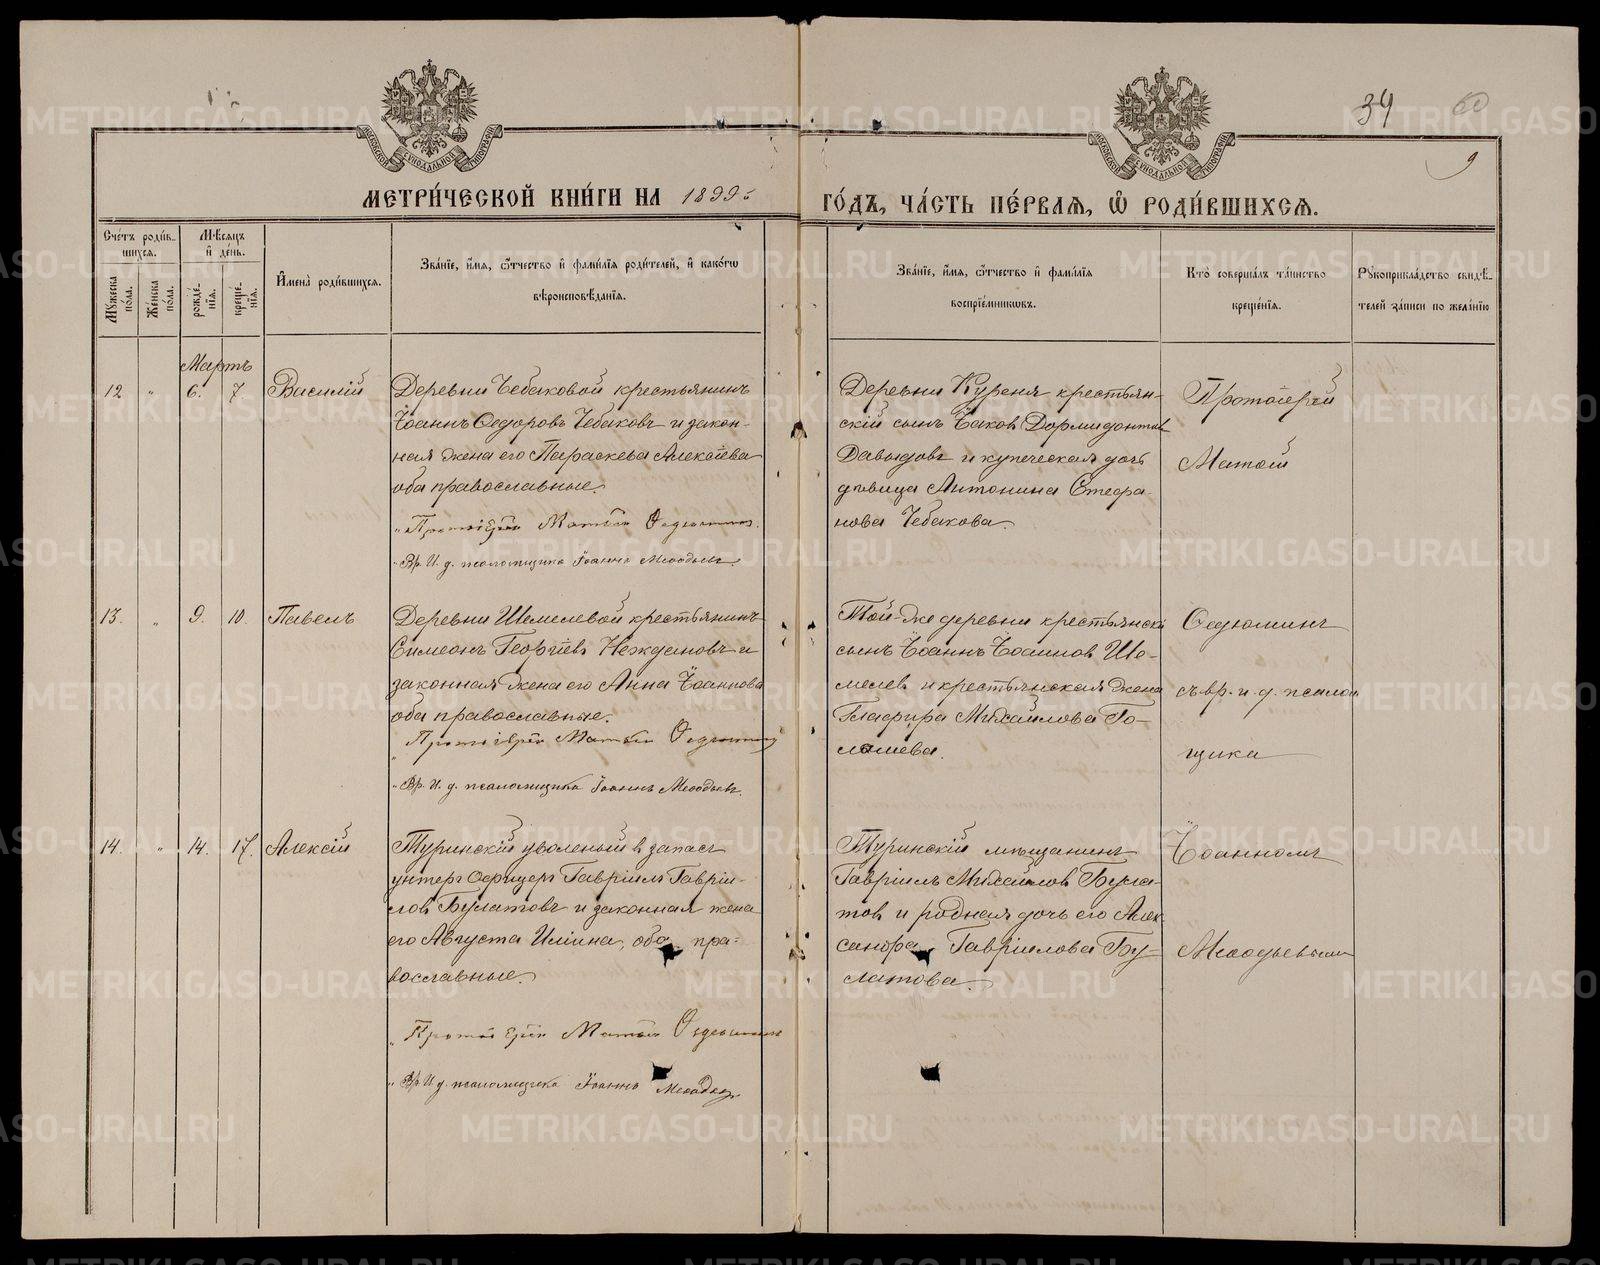 34
60
9
МОСКОВСКОЙ СѴНОДАЛЬНОЙ ТИПОГРАФІИ
МОСКОВСКОЙ СѴНОДАЛЬНОЙ ТИПОГРАФІИ
МЕТРИ́ЧЕСКОЙ КНИ́ГИ НА 1899
ГО́ДЪ, ЧА́СТЬ ПЕ́РВАѦ, Ѽ РОДИ́ВШИХСѦ.
Сче́тъ роди́в-
шихсѧ.
Мѣ́сѧцъ
и҆ де́нь.
Мꙋ́жеска по́ла.
Же́нска по́ла.
рожде́-
нїѧ.
креще́-
нїѧ.
И҆мена̀ роди́вшихсѧ.
Зва́нїе, и҆́мѧ, ѻ҆́тчество и҆ фами́лїѧ роди́телей, и҆ како́гѡ
вѣроисповѣ́данїѧ.
Зва́нїе, и҆́мѧ, ѻ҆́тчество и҆ фами́лїѧ
воспрїе́мникѡвъ.
Кто̀ соверша́лъ та́инство
креще́нїѧ.
Рꙋкоприкла́дство свидѣ́-
телей за́писи по жела́нїю
Мартъ
12 " 6. 7 Василій
Деревни Чебаковой крестьянинъ
Іоаннъ Ѳедоровъ Чебаковъ и закон-
ная жена его Параскева Алексіева
оба православные.
Протоіерей Матѳій Ѳедюшинъ.
Вр. И. д. псаломщика Іоаннъ Меѳодьевъ.
Деревни Куреня крестьян-
скій сынъ Іаковъ Дормидонтов
Давыдовъ и купеческая дочь
дѣвица Антонина Стефа-
нова Чебакова.
Протоіерей
Матѳій
13. " 9. 10. Павелъ
Деревни Шемелевой крестьянинъ
Симеонъ Георгіевъ Неждановъ и
законная жена его Анна Іоаннова
оба православные.
Протоіерей Матѳій Ѳедюшинъ
Вр. И. д. псаломщика Іоаннъ Меѳодьевъ.
Той-же деревни крестьянскій
сынъ Іоаннъ Іоанновъ Ше-
мелевъ и крестьянская жена
Глафира Михайлова Го-
лошева.
Ѳедюшинъ
съ вр. и. д. псалом
щика
14. " 14. 17. Алексій
Туринскій уволеный въ запасъ
унтеръ Офицеръ Гавріилъ Гавріи-
ловъ Булатовъ и законная жена
его Августа Иліина, оба пра-
вославные.
Протоіерей Матѳій Ѳедюшинъ
Вр. И. д. псаломщика Іоаннъ Меѳодьевъ
Туринскій мѣщанинъ
Гавріилъ Михайловъ Була-
товъ и родная дочь его Алек
сандра Гавріилова Бу-
латова.
Іоанномъ
Меѳодьевымъ
METRIKI.GASO-URAL.RU